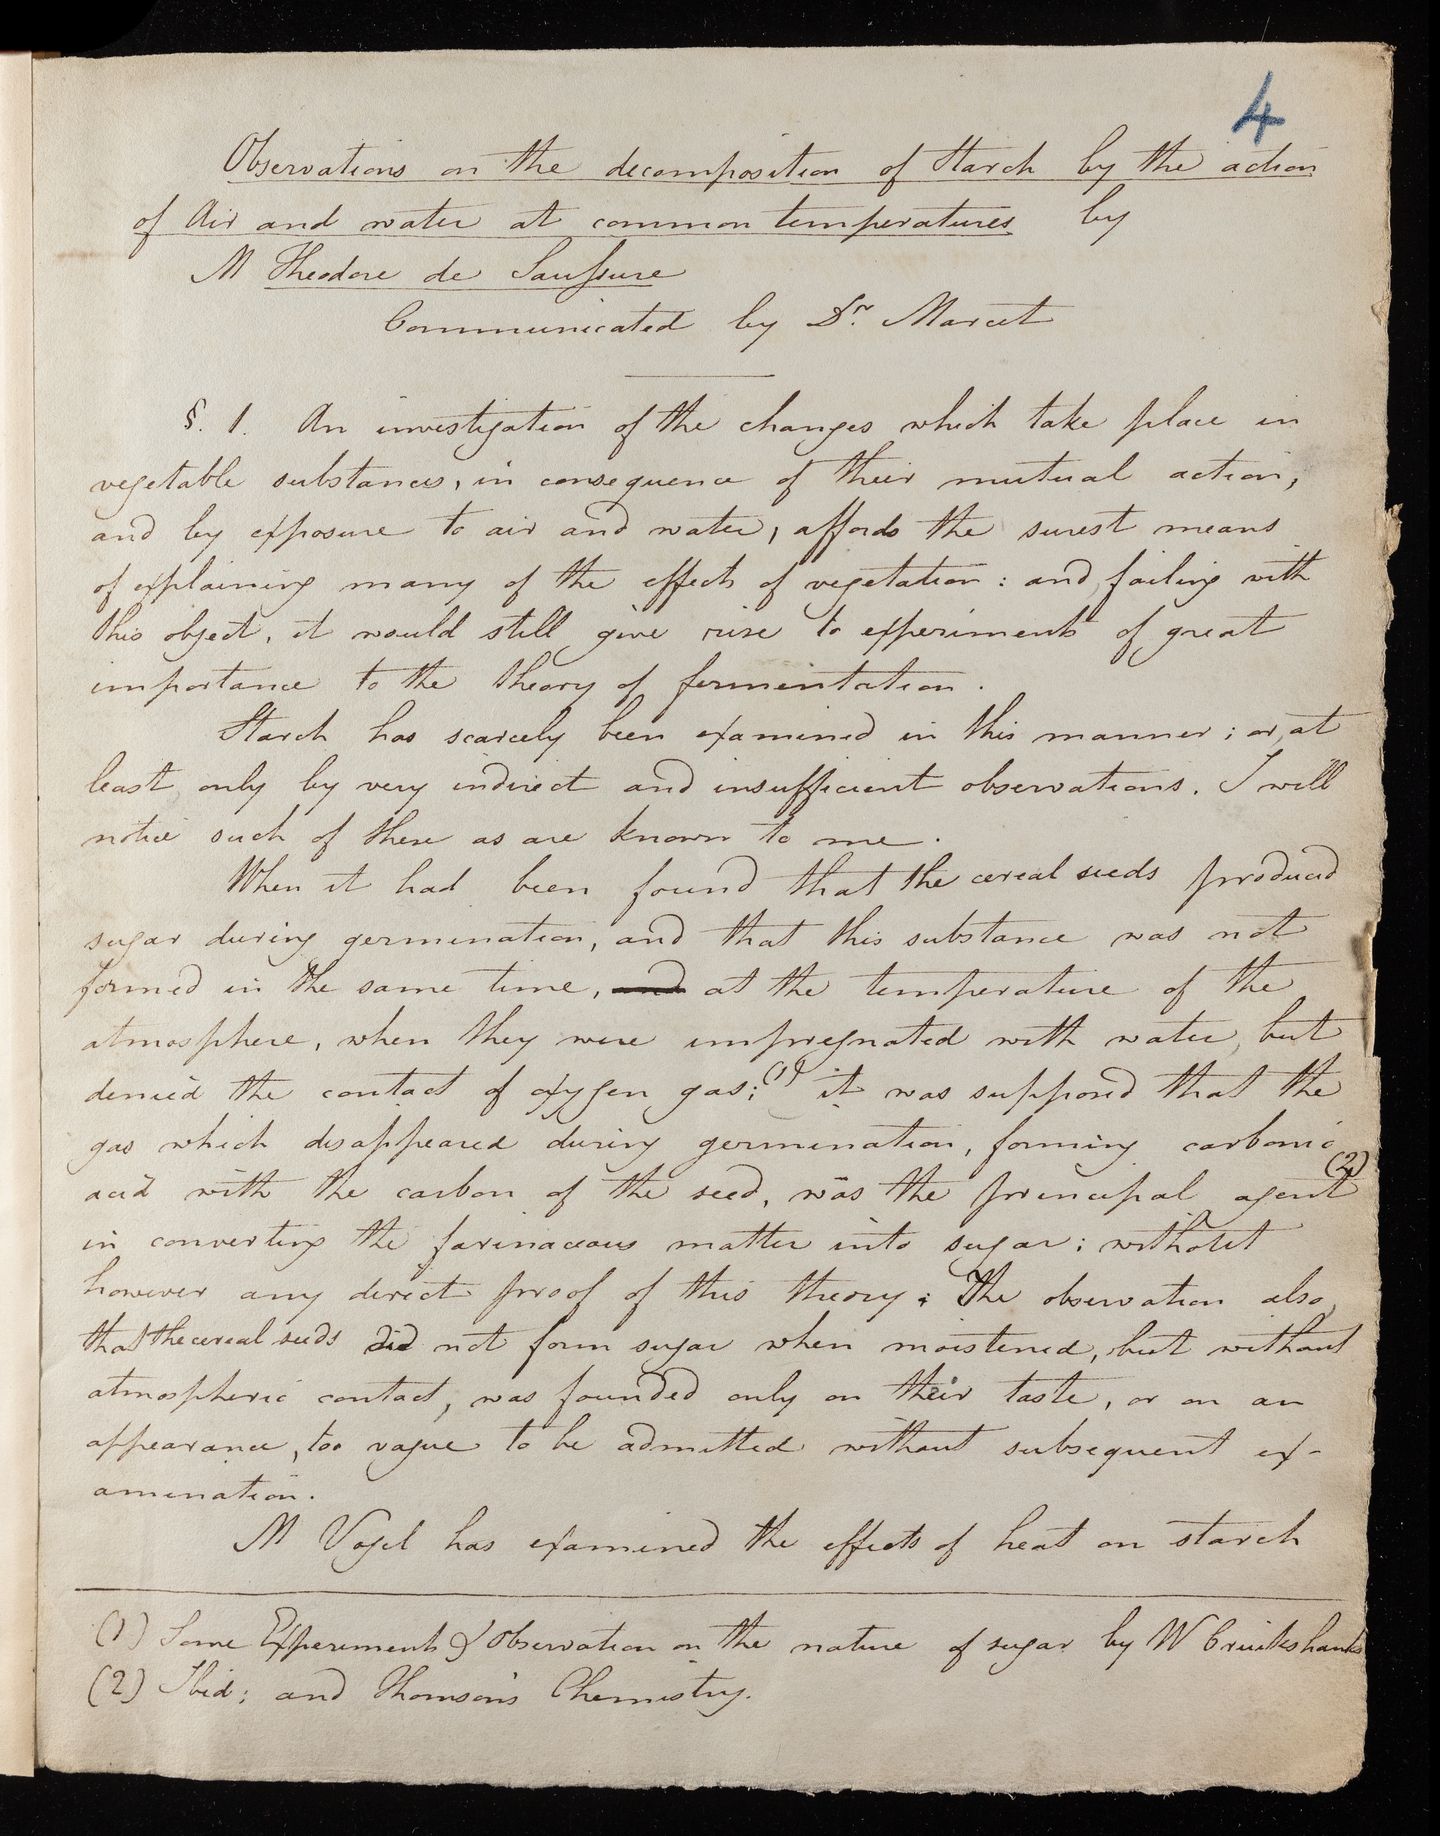 4
Observations on the decomposition of Starch by the action
of Air and water at common temperatures by
M Theodore de Saussure
Communicated by Dr. Marcet
§. 1. An investigation of the changes which take place in
vegetable substances, in consequence of their mutual action,
and by exposure to air and water, affords the surest means
of explaining many of the effects of vegetation: and, failing with
this object, it would still give rise to experiments of great
importance to the theory of fermentation.
Starch has scarcely been examined in this manner; or, at
least only by very indirect and insufficient observations. I will
notice such of these as are known to me.
When it had been found that the cereal seeds produced
sugar during germination, and that this substance was not
formed in the same time, and at the temperature of the
atmosphere, when they were impregnated with water, but
denied the contact of oxygen gas; (1) it was supposed that the
gas which disappeared during germination, forming carbonic
acid with the carbon of the seed, was the principal agent (2)
in converting the farinaceous matter into sugar; without
however any direct proof of this theory: The observation also,
that the cereal seeds did not form sugar when moistened, but without
atmospheric contact, was founded only on their taste, or on an
appearance, too vague to be admitted without subsequent ex-
amination.
M Vogel has examined the effects of heat on starch
(1) Some Experiments & Observation on the nature of sugar by W Cruikshanks
(2) Ibid; and Thomson's Chemistry.